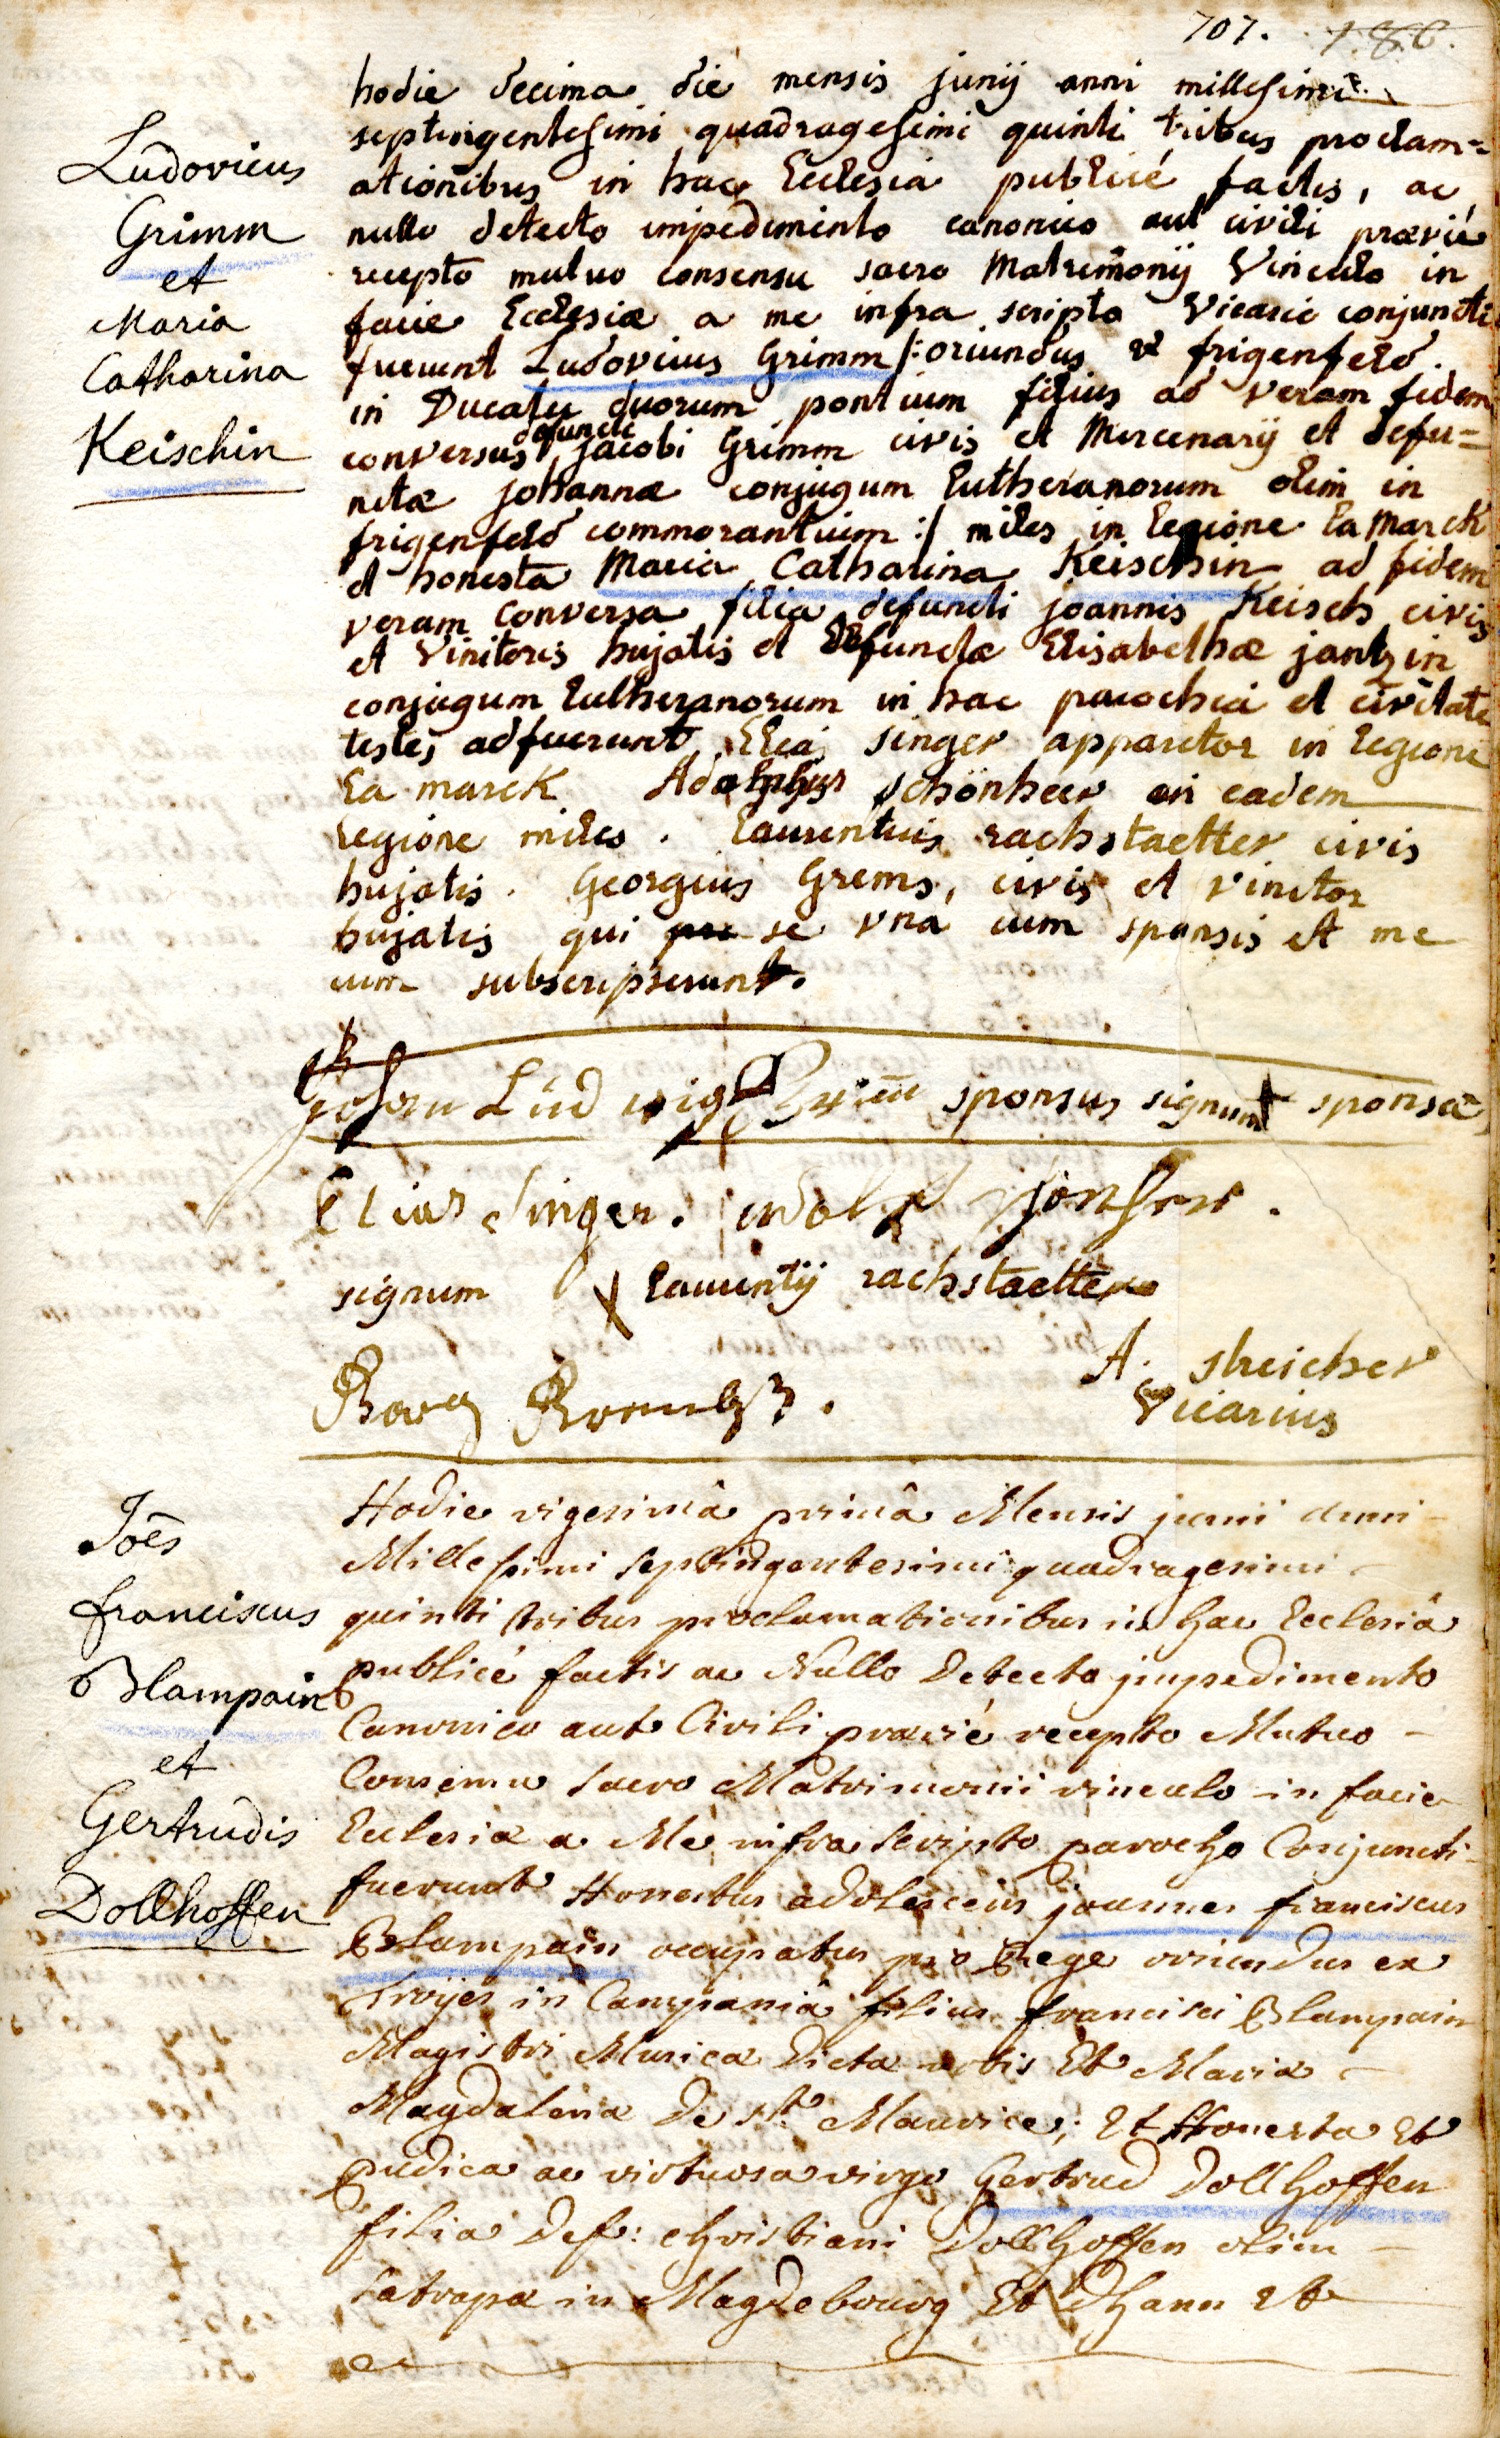 707. 186.
Ludovicus
Grimm
et
Maria
Catharina
Keischin
hodie decima die mensis junij anni millesimi
septingentesimi quadragesimi quinti tribus proclam=
ationibus in hac Ecclesia publicé factis, ac
nullo detecto impedimento canonico aut civili prævié
recepto mutuo consensu sacro Matrimonij Vinculo in
facie Ecclesiæ a me infra scripto Vicario conjuncti
fuerunt Ludovicus Grimm /: oriundus ex frigenfeld
in Ducatu duorum pontium filius ad veram fidem
conversus defuncti jacobi Grimm civis et Mercenarij et defu=
nctæ johannæ conjugum Lutheranorum olim in
frigenfeld commorantium :/ miles in Legione La Marck
et honesta Maria Catharina Keischin ad fidem
veram conversa filia defuncti joannis Keisch civis
et Vinitoris hujatis et defunctæ Elisabethæ jantzin
conjugum Lutheranorum in hac parochiá et civitate
testes adfuerunt Elias singer apparitor in Legione
La marck Adolphus schönheer in eadem
legione miles. Laurentius rachstaetter civis
hujatis. Georgius Grems, civis et vinitor
hujatis qui se una cum sponsis et me
cum subscripserunt.
johan Ludwig Grim sponsus signum + sponsæ
Elias Singer. adolf schönherr.
signum x Laurentij rachstaetter
A. streicher
Vicarius
Joês
franciscus
Blampain
et
Gertrudis
Dollhoffen
Hodie vigesimâ primâ Mensis junii anni
Millesimi septingentesimi quadragesimi
quinti tribus proclamationibus in hac Ecclesiâ
publicé factis ac Nullo Detecto jmpedimento
Canonico aut Civili prævié recepto Mutuo
Consensu sacro Matrimonii vinculo in facie
Ecclesiæ a Me infra scripto parocho Conjuncti
fuerunt Honestus adolescens joannes franciscus
Blampain occupatus pro Rege oriundus ex
Troyes in Campaniâ filius francisci Blampain
Magistri Musicæ Dictæ urbis Et Mariæ
Magdalenæ De st. Maurice; Et Honesta Et
pudica ac virtuosa virgo Gertrud Dollhoffen
filia Def: christiani Dollhoffen olim
satrapæ in Magdebourg Et Dhann Et